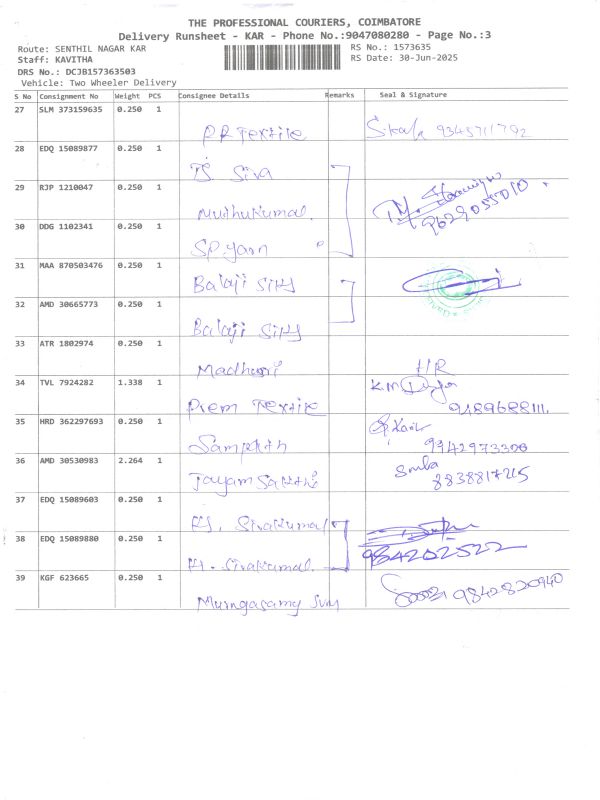 THE PROFESSIONAL COURIERS, COIMBATORE
Delivery Runsheet - KAR - Phone No.:9047080280 - Page No.:3
Route: SENTHIL NAGAR KAR
RS No.: 1573635
Staff: KAVITHA
RS Date: 30-Jun-2025
DRS No.: DCJB157363503
Vehicle: Two Wheeler Delivery
S No Consignment No Weight PCS Consignee Details Remarks Seal & Signature
27 SLM 373159635 0.250 1
P.R Textile 9345711792
28 EDQ 15089877 0.250 1
Siva
29 RJP 1210047 0.250 1
Muthukumal. 9629055010
30 DDG 1102341 0.250 1
SP yarn
31 MAA 870503476 0.250 1
Balaji
32 AMD 30665773 0.250 1
Balaji
33 ATR 1802974 0.250 1
Madhumi
34 TVL 7924282 1.338 1
Prem Textile
35 HRD 362297693 0.250 1
9942973306
36 AMD 30530983 2.264 1
Jayam Sakthi
37 EDQ 15089603 0.250 1
Sivakumal
38 EDQ 15089880 0.250 1
Sivakumal. 984202522
39 KGF 623665 0.250 1
9842820940